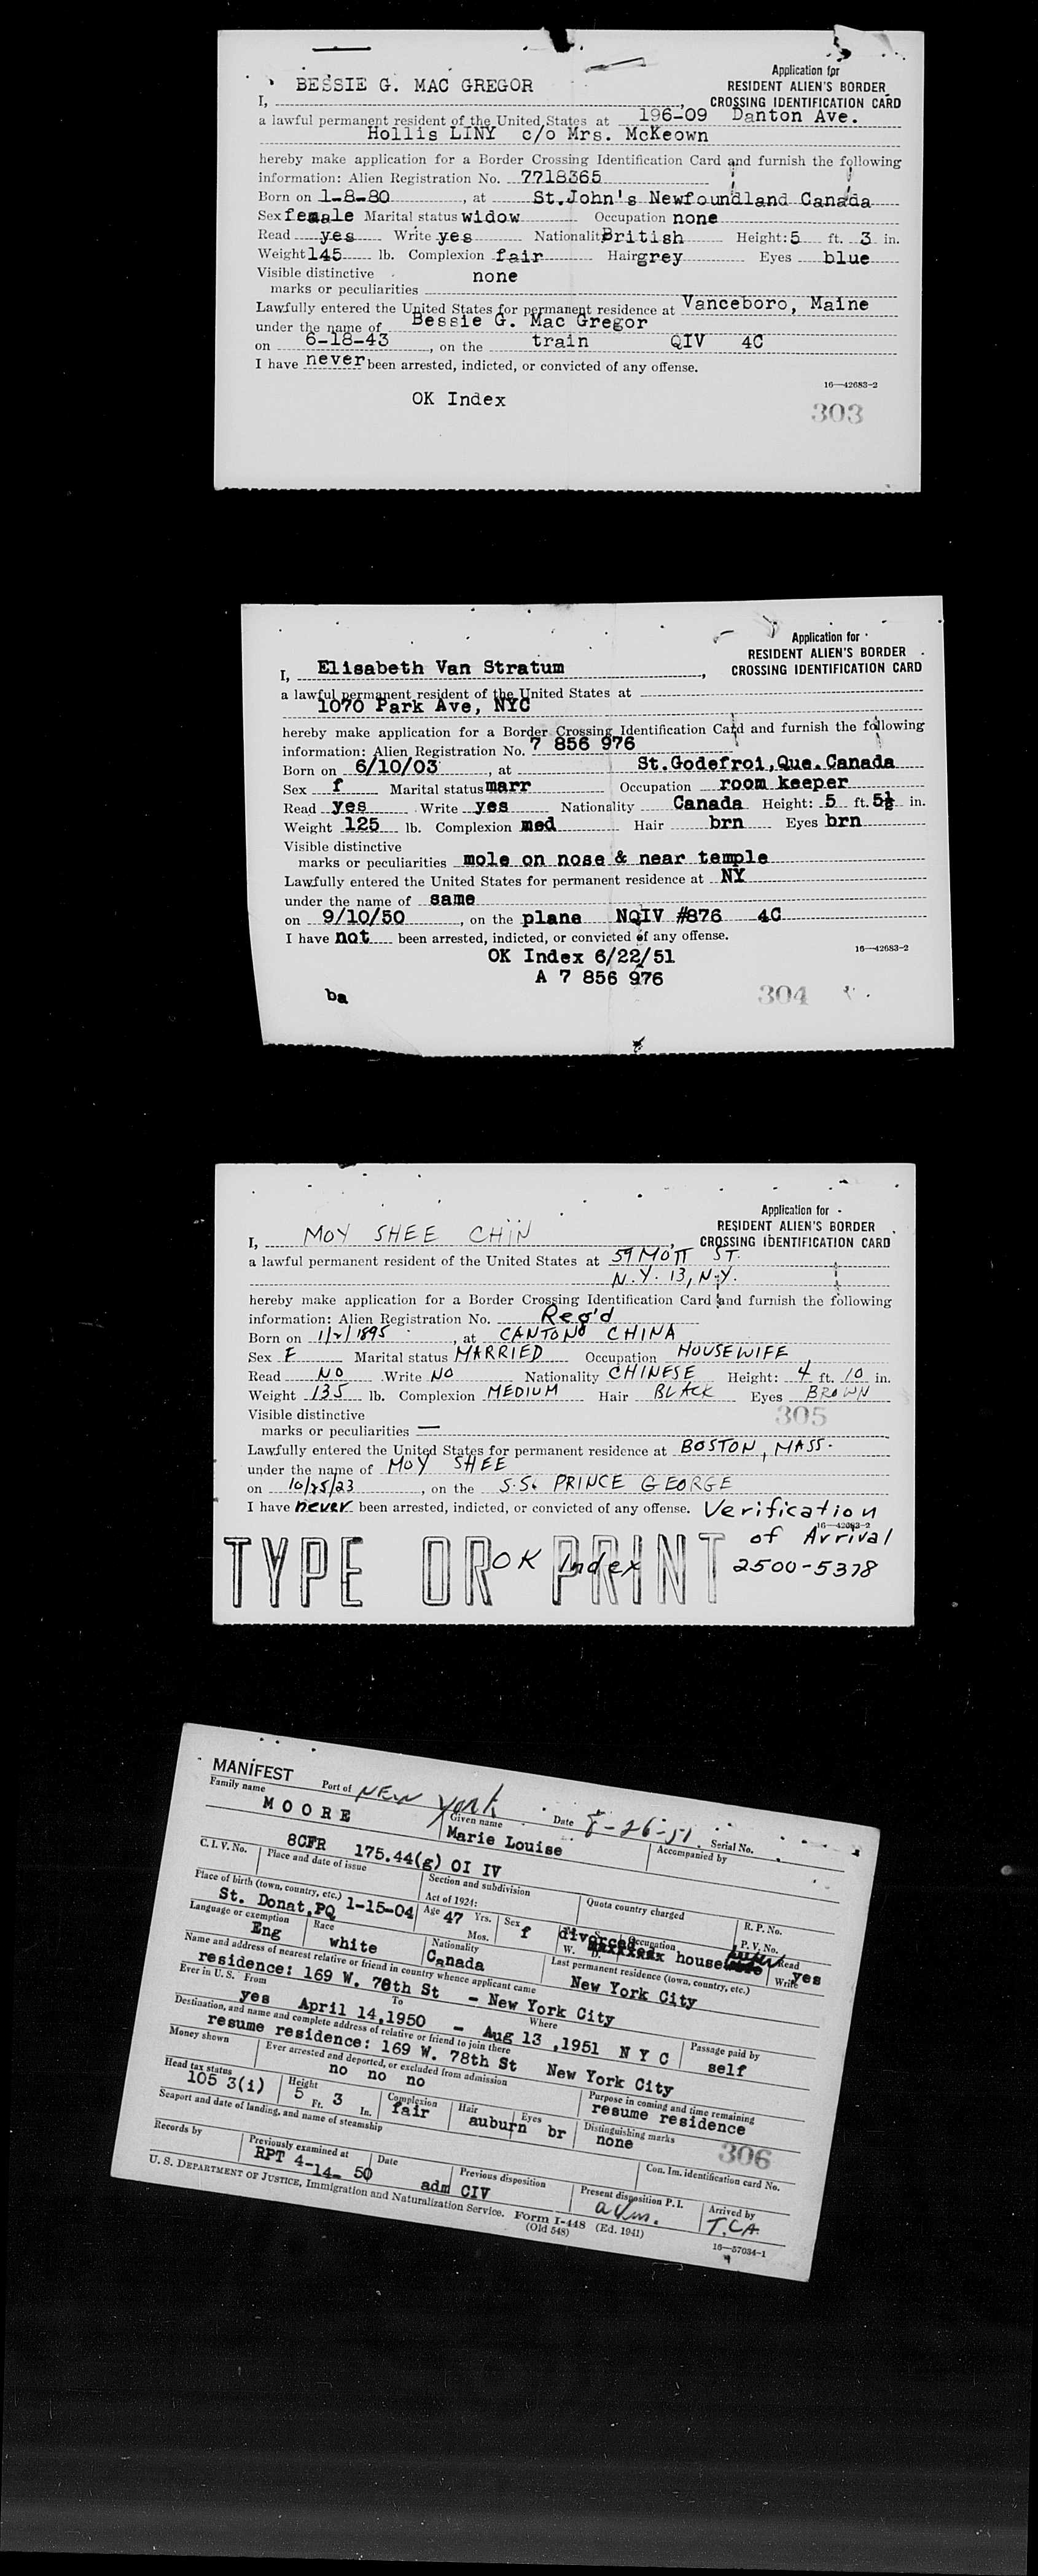 Application for
RESIDENT ALIEN'S BORDER
CROSSING IDENTIFICATION CARD
I, BESSIE G. MAC GREGOR,
a lawful permanent resident of the United States at 196-09 Danton Ave.
Hollis LINY c/o Mrs. McKeown
hereby make application for a Border Crossing Identification Card and furnish the following
information: Alien Registration No. 7718365
Born on 1-8-80, at St.John's Newfoundland Canada
Sex female Marital status widow Occupation none
Read yes Write yes Nationality British Height: 5 ft. 3 in.
Weight 145 lb. Complexion fair Hair grey Eyes blue
Visible distinctive
marks or peculiarities none
Lawfully entered the United States for permanent residence at Vanceboro, Maine
under the name of Bessie G. Mac Gregor
on 6-18-43, on the train QIV 4C
I have never been arrested, indicted, or convicted of any offense.
16—42683-2
OK Index
303
Application for
RESIDENT ALIEN'S BORDER
CROSSING IDENTIFICATION CARD
I, Elisabeth Van Stratum,
a lawful permanent resident of the United States at
1070 Park Ave, NYC
hereby make application for a Border Crossing Identification Card and furnish the following
information: Alien Registration No. 7 856 976
Born on 6/10/03, at St.Godefroi,Que.Canada
Sex f Marital status marr Occupation room keeper
Read yes Write yes Nationality Canada Height: 5 ft. 5½ in.
Weight 125 lb. Complexion med Hair brn Eyes brn
Visible distinctive
marks or peculiarities mole on nose & near temple
Lawfully entered the United States for permanent residence at NY
under the name of same
on 9/10/50, on the plane NQIV #876 4C
I have not been arrested, indicted, or convicted of any offense.
16—42683-2
OK Index 6/22/51
A 7 856 976
ba
304
Application for
RESIDENT ALIEN'S BORDER
CROSSING IDENTIFICATION CARD
I, MOY SHEE CHIN,
a lawful permanent resident of the United States at 59 MOTT ST.
N.Y. 13, N.Y.
hereby make application for a Border Crossing Identification Card and furnish the following
information: Alien Registration No. Reg'd
Born on 1/2/1895, at CANTONO CHINA
Sex F Marital status MARRIED Occupation HOUSEWIFE
Read NO Write NO Nationality CHINESE Height: 4 ft. 10 in.
Weight 135 lb. Complexion MEDIUM Hair BLACK Eyes BROWN
305
Visible distinctive
marks or peculiarities —
Lawfully entered the United States for permanent residence at BOSTON, MASS.
under the name of MOY SHEE
on 10/25/23, on the S.S. PRINCE GEORGE
I have never been arrested, indicted, or convicted of any offense. Verification
16—42683-2
of Arrival
2500-5378
TYPE OR PRINT
OK Index
MANIFEST
Port of NEW York Date 8-26-51 Serial No.
Family name MOORE Given name Marie Louise Accompanied by
8CFR 175.44(g) OI IV
C.I.V. No. Place and date of issue Section and subdivision Act of 1924: Quota country charged R.P. No.
Place of birth (town, country, etc.) St. Donat,PQ 1-15-04 Age 47 Yrs. Mos. Sex f W. D. divorced Occupation house P.V. No.
Language or exemption Eng Race white Nationality Canada Last permanent residence (town, country, etc.) New York City Read Write yes
Name and address of nearest relative or friend in country whence applicant came
residence: 169 W. 78th St - New York City
Ever in U.S. yes From April 14,1950 To - Aug 13 ,1951 Where N Y C Passage paid by self
Destination, and name and complete address of relative or friend to join there
resume residence: 169 W. 78th St New York City
Money shown Ever arrested and deported, or excluded from admission no no no Purpose in coming and time remaining resume residence
Head tax status 105 3(i) Height 5 Ft. 3 In. Complexion fair Hair auburn Eyes br Distinguishing marks none
306
Seaport and date of landing, and name of steamship Con. Im. identification card No.
Records by Previously examined at RPT 4-14- 50 Date Previous disposition adm CIV Present disposition P.I. adm. Arrived by T.C.A.
U. S. DEPARTMENT OF JUSTICE, Immigration and Naturalization Service. Form I-448 (Ed. 1941)
(Old 548)
16—57034-1